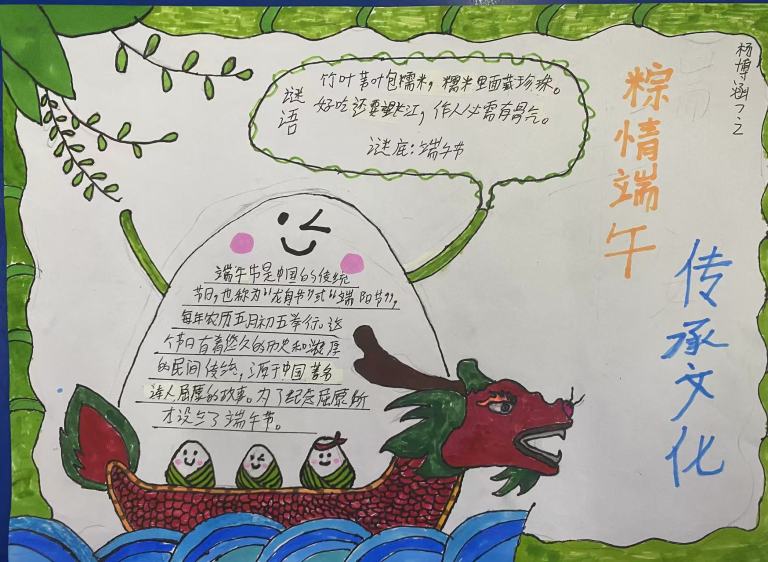 杨博涵7.2
粽情端午
传承文化
谜语
竹叶苇叶包糯米，糯米里面藏珍珠。
好吃还要望长江，作人必需有骨气。
谜底：端午节
端午节是中国的传统
节日，也称为“龙舟节”或“端阳节”，
每年农历五月初五举行。这
个节日有着悠久的历史和浓厚
的民间传统，源于中国著名
诗人屈原的故事。为了纪念屈原所
才设立了端午节。